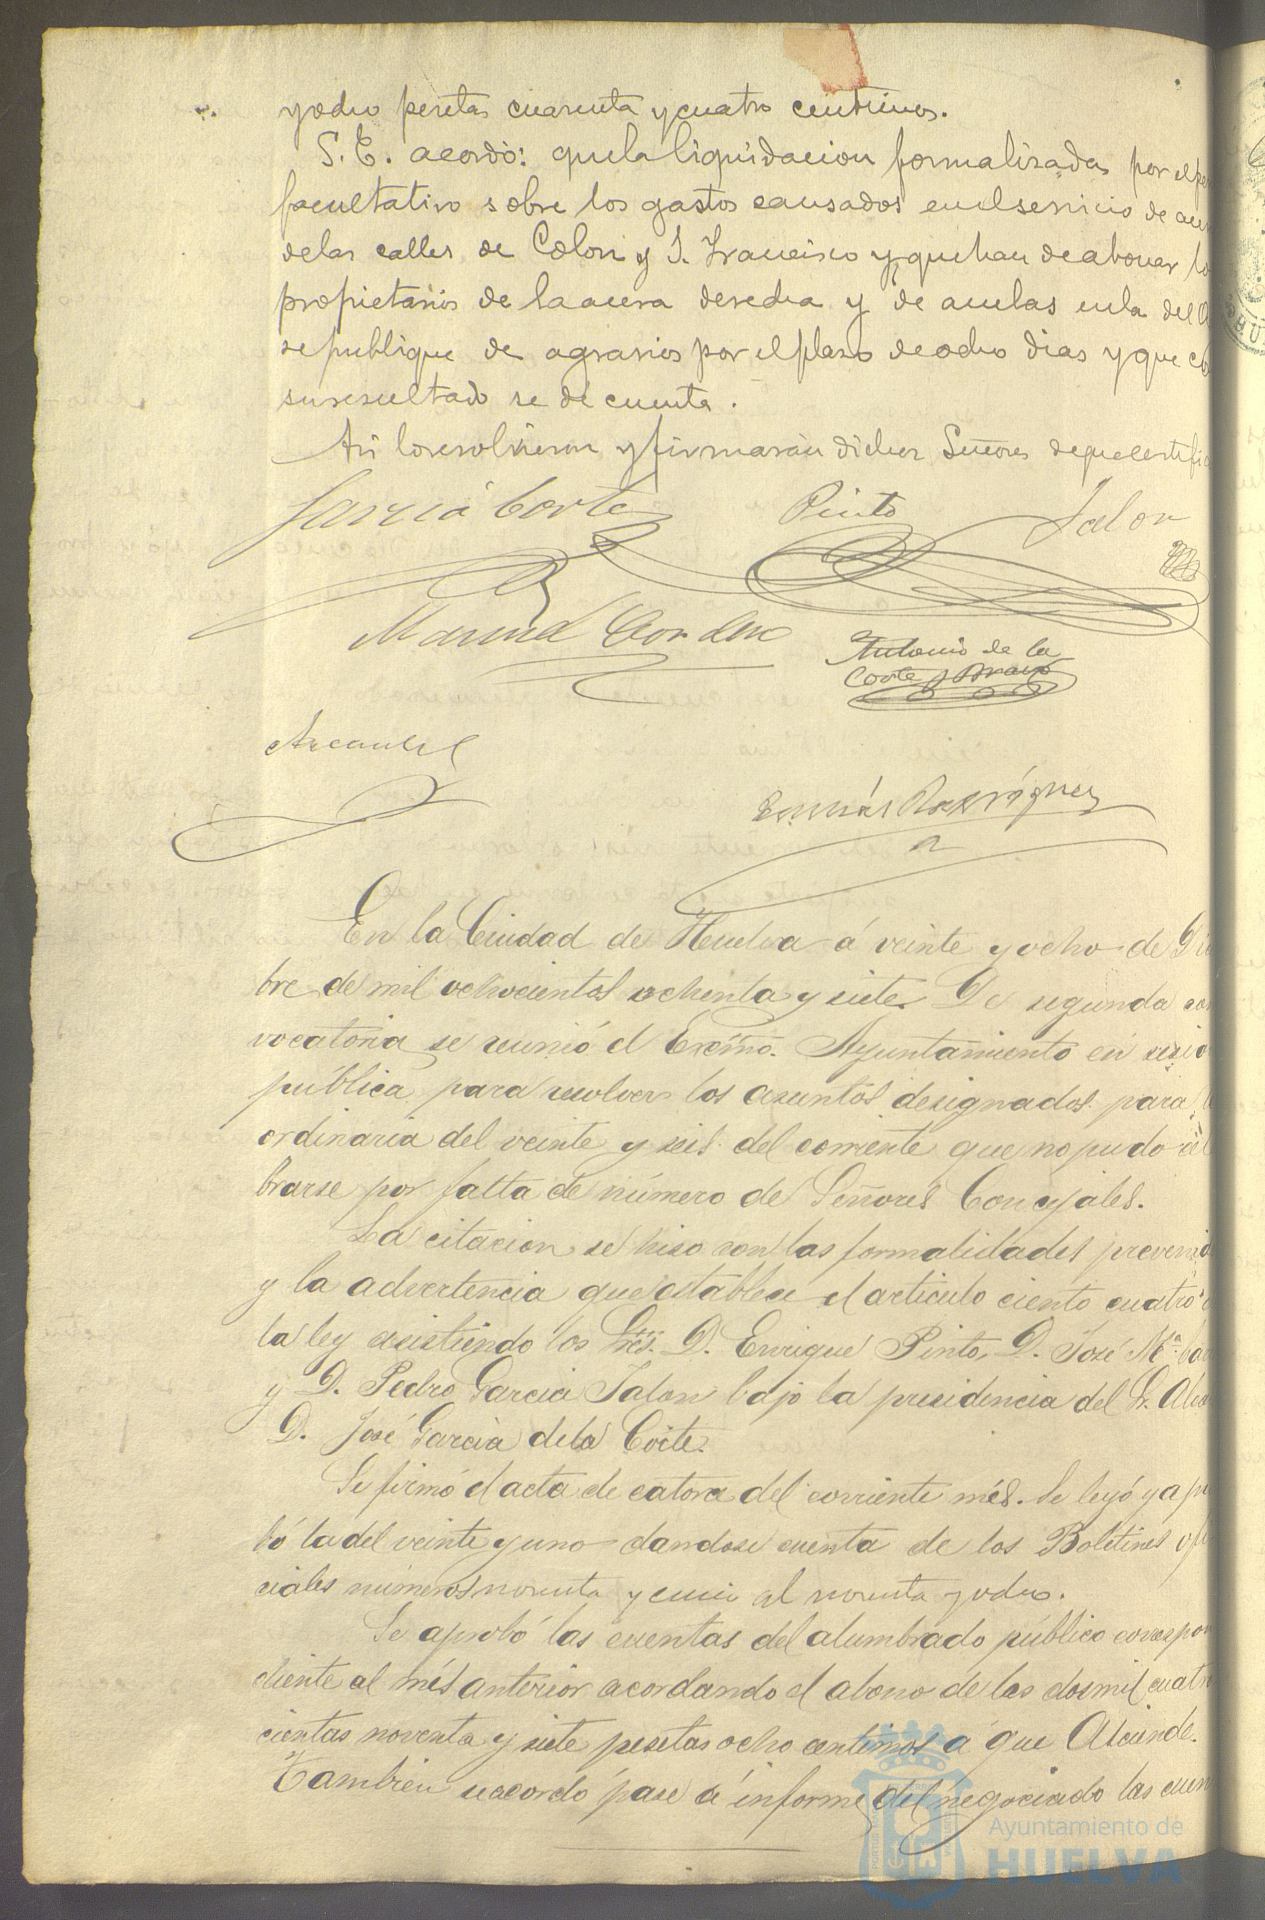 y ocho pesetas cuarenta y cuatro centimos.
S. E. acordó: que la liquidacion formalizada por el pe
facultativo sobre los gastos causados en el servicio de ace
de las calles de Colon y S. Francisco y que han de abonar lo
propietarios de la acera derecha y de ambas en la del
se publique de agravios por el plazo de ocho dias y que c
su resultado se dé cuenta.
Asi lo resolvieron y firmarán dichos Señores de que certifi
García Corte Pinto Jalon
Manuel Cordero
Antonio de la
Corte y Bravo
Tomás Rodríguez
En la Ciudad de Huelva á veinte y ocho de Di
bre de mil ochocientos ochenta y siete. De segunda con
vocatoria se reunió el Excmo. Ayuntamiento en sesio
pública para resolver los asuntos designados para l
ordinaria del veinte y seis del corriente que no pudo cel
brarse por falta de número de Señores Concejales.
La citacion se hizo con las formalidades preveni
y la advertencia que establece el artículo ciento cuatro
la ley asistiendo los Sres. D. Enrique Pinto, D. José Mª
y D. Pedro Garcia Jalon bajo la presidencia del Sr. Alca
D. José García de la Corte.
Se firmó el acta de catorce del corriente més. Se leyó y apr
bó la del veinte y uno dandose cuenta de los Boletines ofi
ciales números noventa y cinco al noventa y ocho.
Se aprobó las cuentas del alumbrado público correspon
diente al més anterior acordando el abono de las dos mil cuatro
cientas noventa y siete pesetas ocho centimos á que Asciende.
Tambien se acordó pase á informe del negociado las cuen
Ayuntamiento de
HUELVA